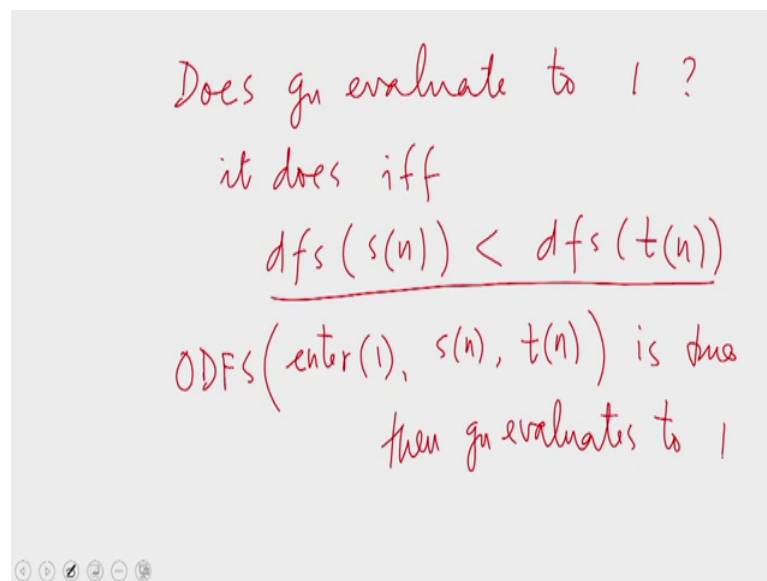 Does gn evaluate to 1 ?
it does iff
dfs (s(n)) < dfs (t(n))
ODFS (enter(1), s(n), t(n)) is true
then gn evaluates to 1